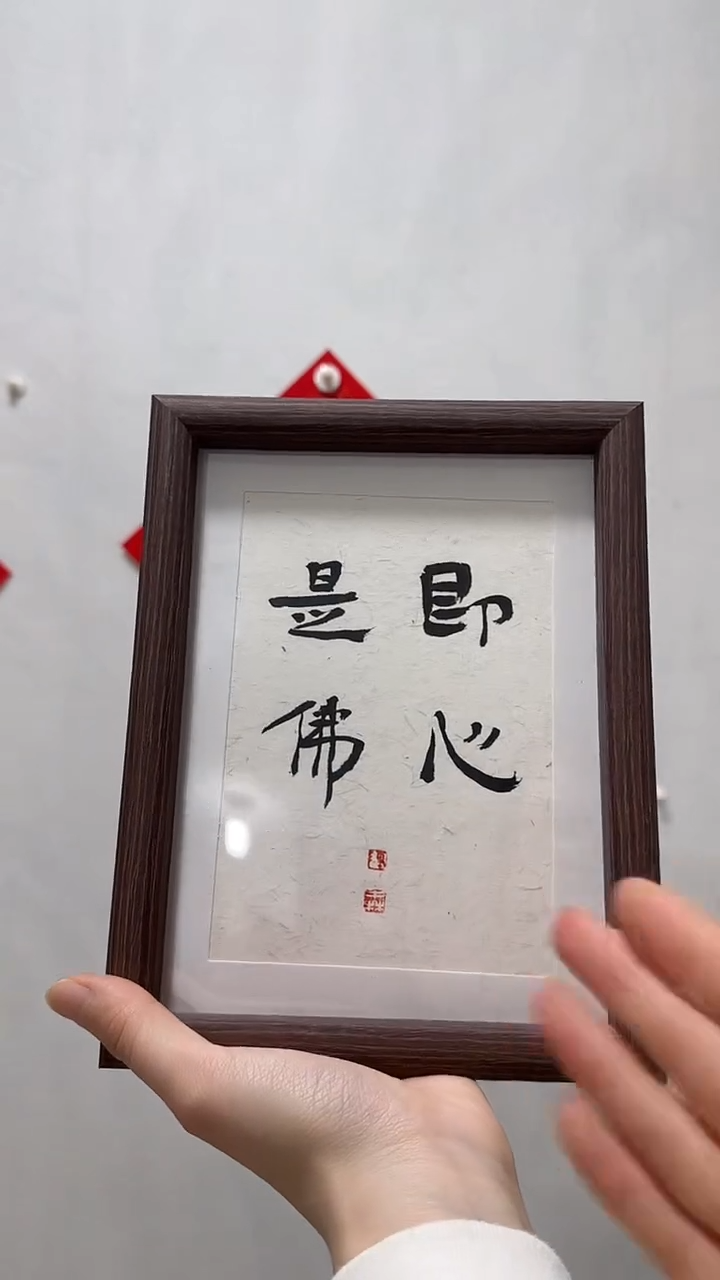 即心
是佛